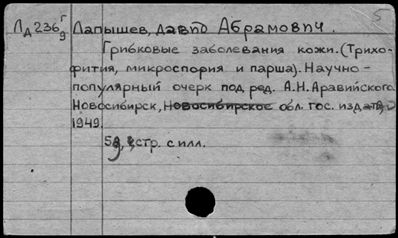 5
Лд236 г/9 Лапышев, Давид Абрамович.
Грибковые заболевания кожи. (Трихо-
фития, микроспория и парша). Научно-
популярный очерк под ред. А.Н. Аравийского.
Новосибирск, Новосибирское обл. гос. издат,
1949.
стр. с илл.